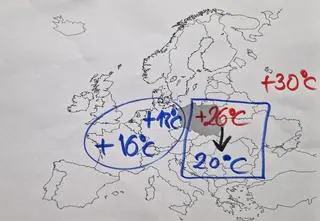 +30°C
+26°C
+18°C
+16°C
20°C